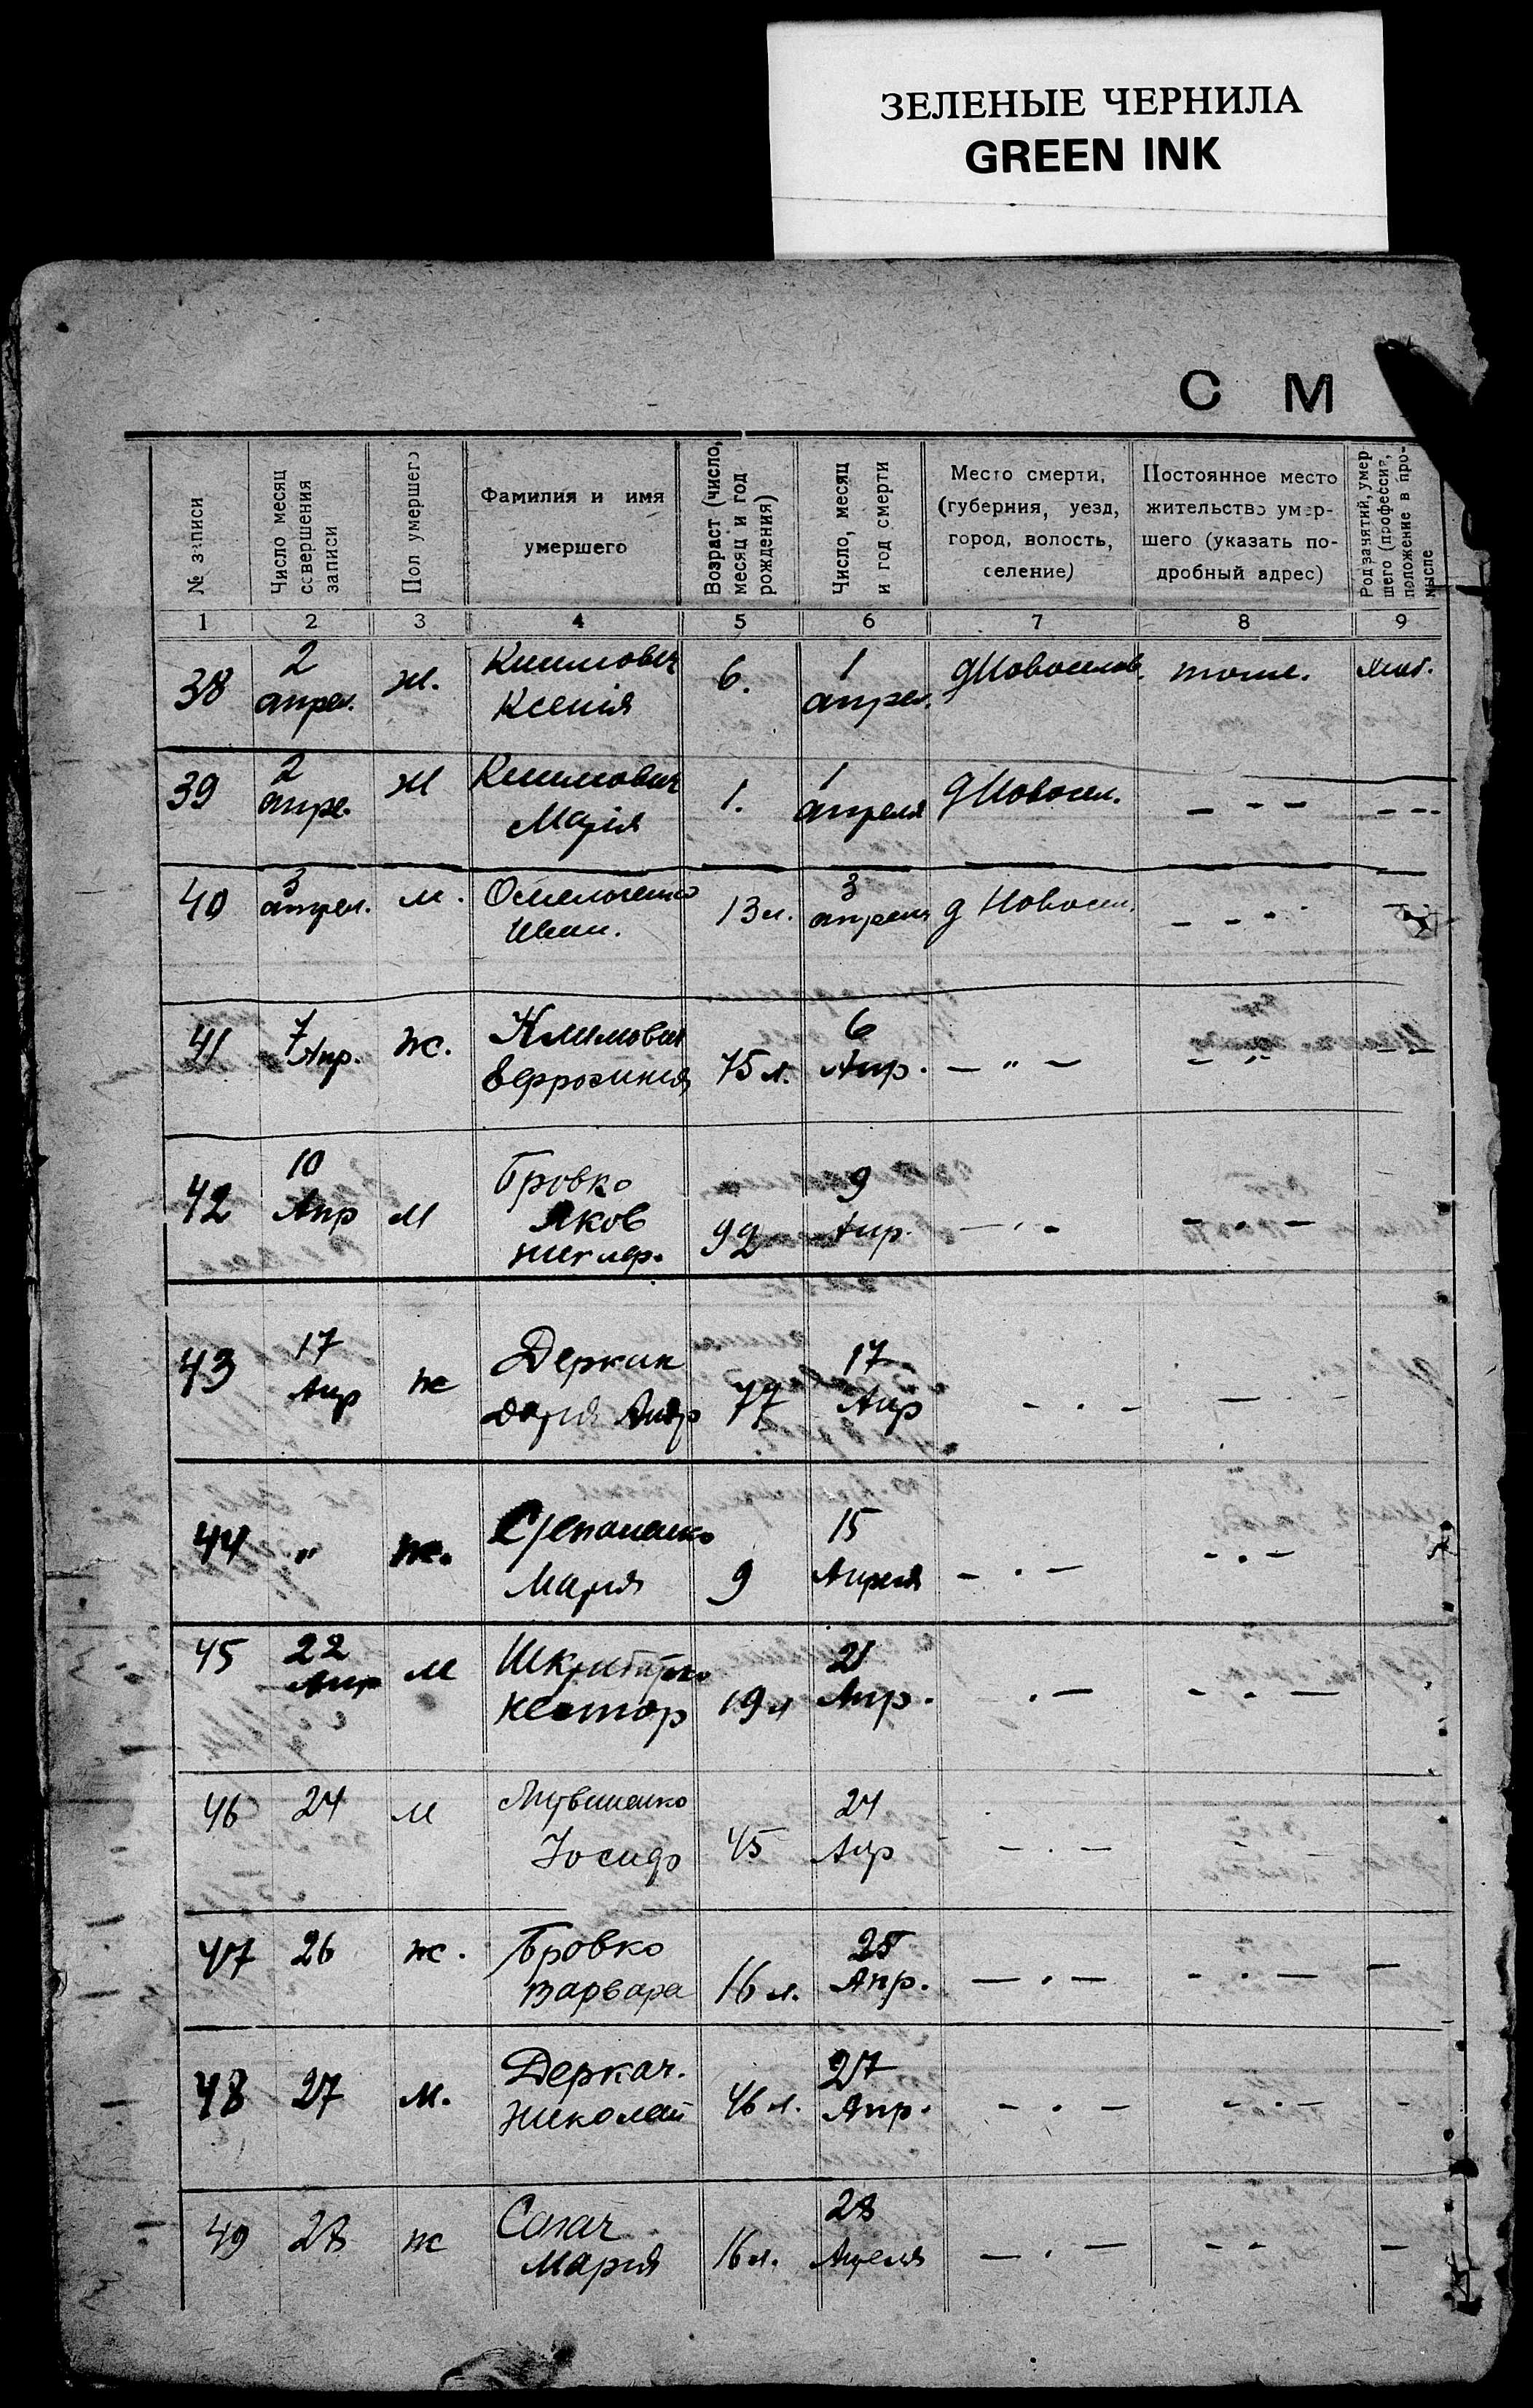 ЗЕЛЕНЫЕ ЧЕРНИЛА
GREEN INK
С М
№ записи
Число месяц
совершения
записи
Пол умершего
Фамилия и имя
умершего
Возраст (число,
месяц и год
рождения)
Число, месяц
и год смерти
Место смерти,
(губерния, уезд,
город, волость,
селение)
Постоянное место
жительство умер-
шего (указать по-
дробный адрес)
Род занятий, умер
шего (профессия,
положение в про-
мысле
1 2 3 4 5 6 7 8 9
38 2 ж. Климович 6. 1 д Новоселов. тоже. хлеб.
апрел. Ксенія апрел.
39 2 ж Климович 1. 1 д Новосел. - - - - - -
апре. Марія апреля
40 3 м. Омельченко 13 л. 3 д Новосел. - - - -
апрел. Иван. апреля
41 7 ж. Климович 6 — " — - " - - -
Апр. 75 л. Апр.
42 10 м Бровко 9
Апр Яков 92 Апр. — . - - . -
43 17 ж Деркач 17
Апр Дарія Андр 77 Апр - . - —
44 " ж. Степаненко 15 - . —
Мария 9 Апреля - . —
45 22 м 21
Апр Нестор 19 л Апр. . — - . —
46 24 м 24
Иосиф 45 Апр — . — -
47 26 ж. Бровко 25
Варвара 16 л. Апр. — . — - . — —
48 27 м. Деркач. 27
Николай 46 л. Апр. - . — - . — -
49 28 ж Сагач 28
Мария 16 л. Апреля — . — - - —